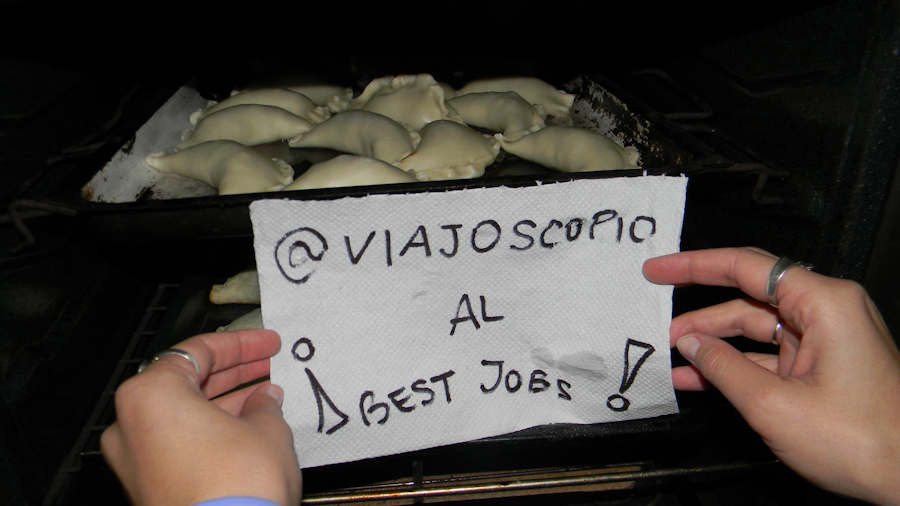 @VIAJOSCOPIO
AL
¡BEST JOBS!